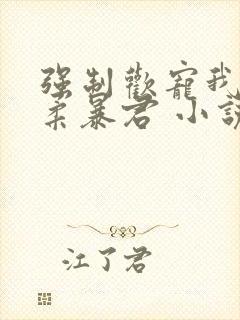 强制歡寵我
柔暴君 小說
江了君